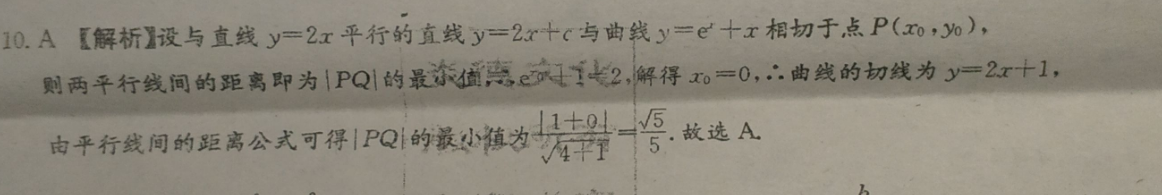 10. A 【解析】设与直线 y=2x 平行的直线 y=2x+c 与曲线 y=eˣ+x 相切于点 P(x₀,y₀),
则两平行线间的距离即为|PQ|的最小值,∴eˣ⁰+1=2,解得 x₀=0,∴曲线的切线为 y=2x+1,
由平行线间的距离公式可得|PQ|的最小值为 |1+0|/√(4+1)=√5/5. 故选 A.